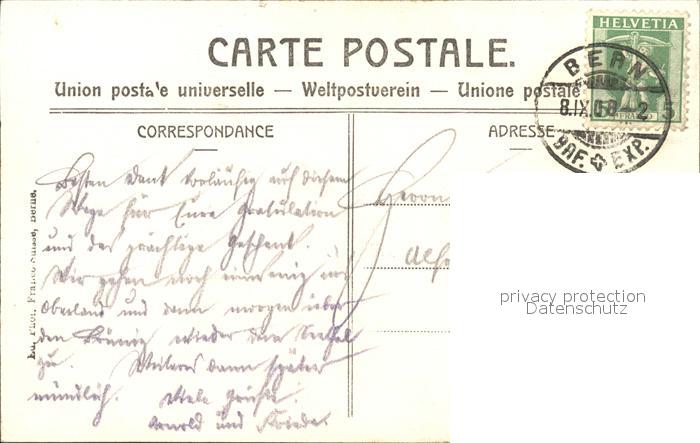 CARTE POSTALE.
Union postale universelle — Weltpostverein — Unione postale
HELVETIA
BERN
8.IX.08- 2
BRF. EXP.
5
CORRESPONDANCE
ADRESSE
Ed. Phot. Franco-Suisse, Berne.
Besten Dank vorläufig auf diesem
Wege für Eure Gratulation
und das prächtige Geschenk.
Wir gehen noch ins
Oberland und dann morgen über
den Brünig wieder dem
zu. Weiteres dann später
mündlich. Viele Grüsse
Arnold und Frieda.
Herrn
privacy protection
Datenschutz